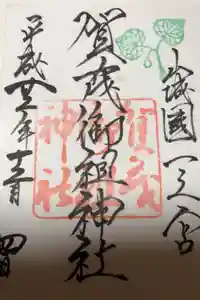 山城國一之宮
賀茂御祖神社
賀茂御祖神社
平成廿年十月
四日